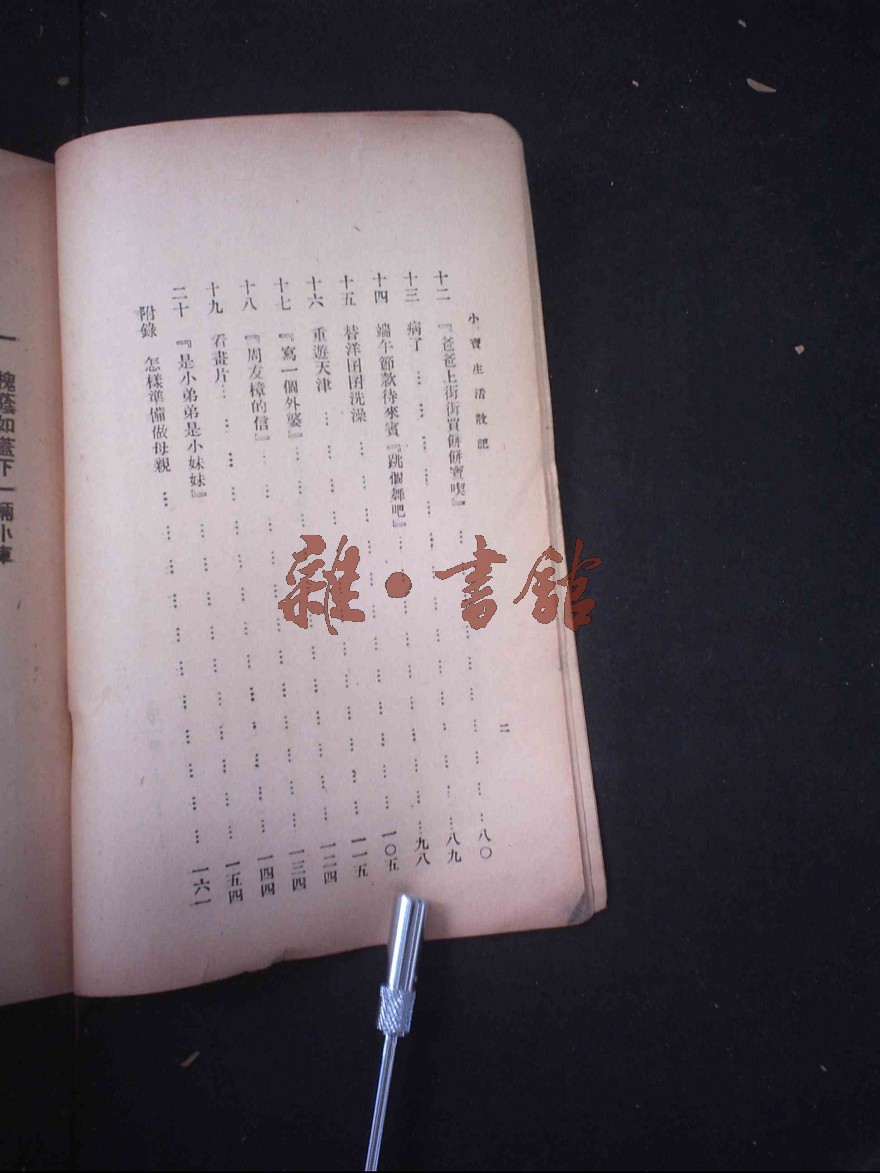 小寶生活散記
二
十二 『爸爸上街街買餅餅寶喫』 … 八〇
十三 病了 … 八九
十四 端午節款待來賓『跳個舞吧』 … 九八
十五 替洋囡囡洗澡 … 一〇五
十六 重遊天津 … 一一五
十七 『寫一個外婆』 … 一二四
十八 『周友樟的信』 … 一三四
十九 看畫片 … 一四四
二十 『是小弟弟是小妹妹』 … 一五四
附錄 怎樣準備做母親 … 一六一
一 槐蔭如蓋下一輛小車
雜·書館